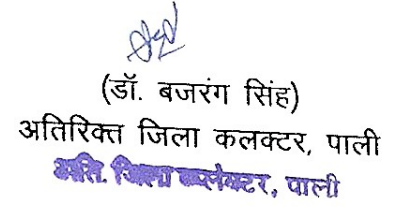 (डॉ. बजरंग सिंह)
अतिरिक्त जिला कलक्टर, पाली
अति. जिला कलेक्टर, पाली